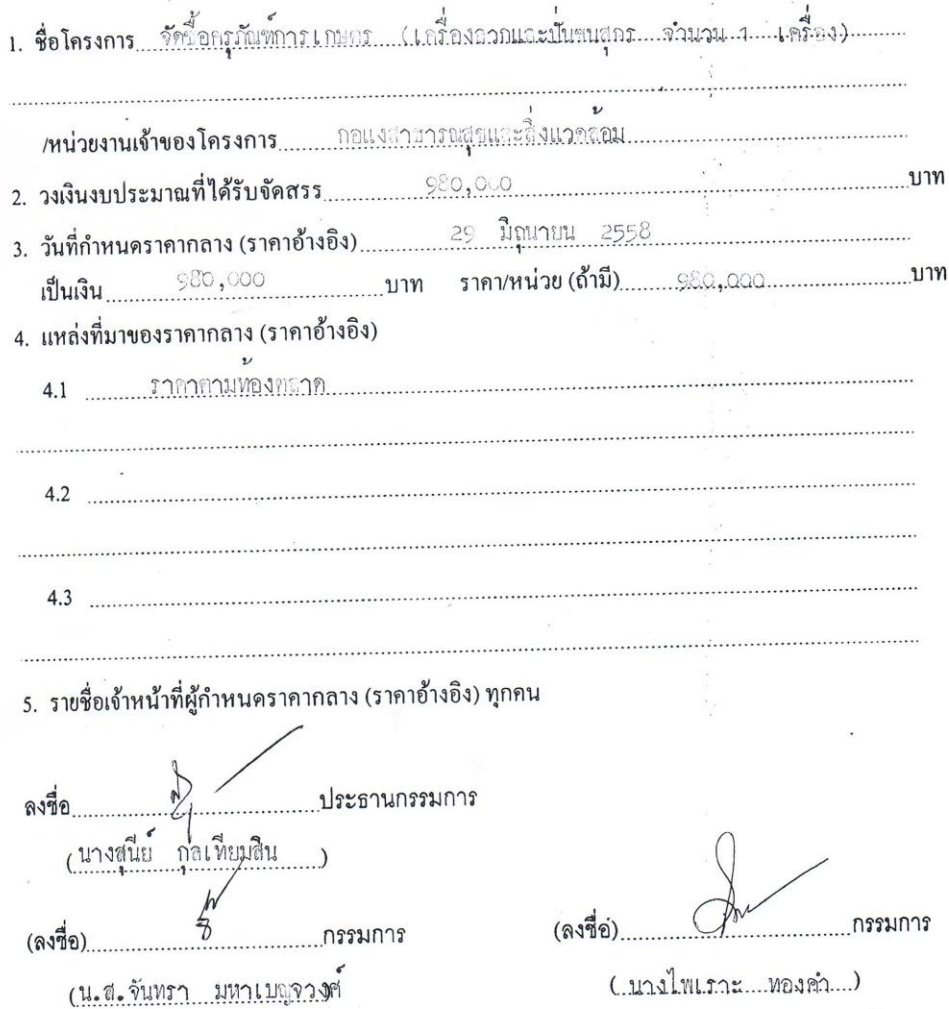 1. ชื่อโครงการ จัดซื้อครุภัณฑ์การเกษตร (เครื่องลวกและปั่นขนสุกร จำนวน 1 เครื่อง)
/หน่วยงานเจ้าของโครงการ กอแงสาธารณสุขและสิ่งแวดล้อม
2. วงเงินงบประมาณที่ได้รับจัดสรร 980,000 บาท
3. วันที่กำหนดราคากลาง (ราคาอ้างอิง) 29 มิถุนายน 2558
เป็นเงิน 980,000 บาท ราคา/หน่วย (ถ้ามี) 980,000 บาท
4. แหล่งที่มาของราคากลาง (ราคาอ้างอิง)
4.1 ราคาตามท้องตลาด
4.2
4.3
5. รายชื่อเจ้าหน้าที่ผู้กำหนดราคากลาง (ราคาอ้างอิง) ทุกคน
ลงชื่อ ประธานกรรมการ
(นางสุนีย์ กุลเทียมสิน)
(ลงชื่อ) กรรมการ (ลงชื่อ) กรรมการ
(น.ส.จันทรา มหาเบญจวงศ์ (นางไพเราะ ทองคำ)